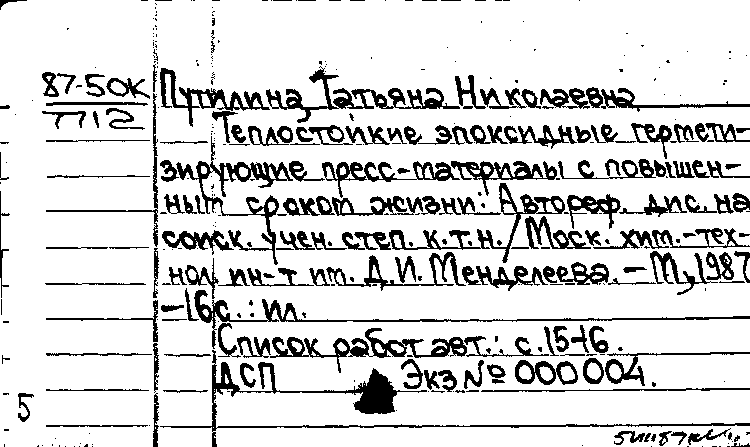 87-50К Путилина, Татьяна Николаевна
7712 Теплостойкие эпоксидные гермети-
зирующие пресс-материалы с повышен-
ным сроком жизни: Автореф. дис. на
соиск. учен. степ. к.т.н. / Моск. хим.-тех-
нол. ин-т им. Д.И. Менделеева. – М., 1987
–16с.: ил.
Список работ авт.: с.15-16.
ДСП Экз № 000004.
5